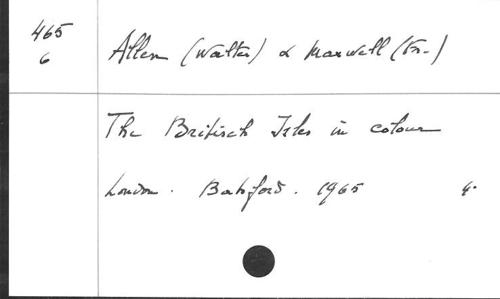 465
6
Allen (Walter) & Maxwell (Fr-)
The Britisch Isles in colour
London. Batsford. 1965 4°